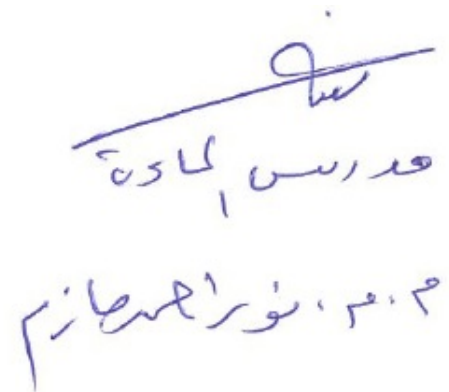 مدرس المادة
م.م. نور احمد حازم